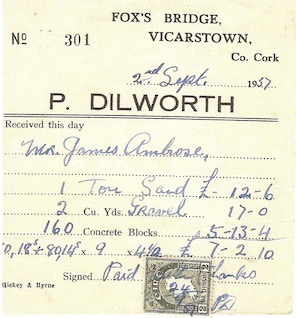 FOX'S BRIDGE,
Nº 301 VICARSTOWN,
Co. Cork
2nd Sept. 1957
P. DILWORTH
Received this day
Mr. James Ambrose,
1 Ton Sand £ - 12-6
2 Cu. Yds. Gravel 17-0
160 Concrete Blocks 5-13-4
18 x 9 x 4½ £ 7-2 10
Signed Paid
Hickey & Byrne PD